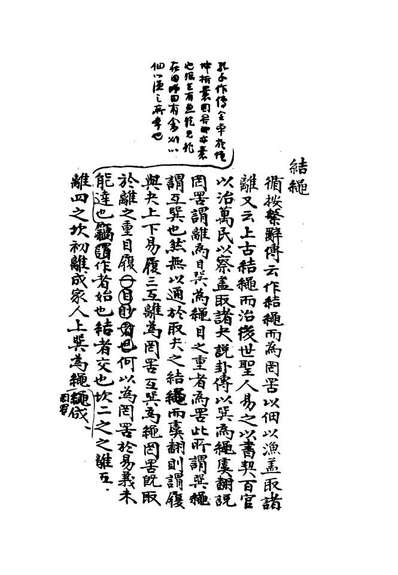 結繩
衢按繫辭傳云作結繩而為罔罟以佃以漁蓋取諸
離又云上古結繩而治後世聖人易之以書契百官
以治萬民以察蓋取諸夬說卦傳以巽為繩虞翻說
罔罟謂離為目巽為繩目之重者為罟此所謂巽繩
謂互巽也然無以通於取夬之結繩而虞翻則謂履
與夬上下易履三互離為罔罟互巽為繩罔罟既取
於離之重目履一目眇者也何以為罔罟於易義未
能達也竊謂作者始也結者交也坎二之之離互
離四之坎初離成家人上巽為繩繩成
罔罟
孔子作傳
佃以漁之所本也